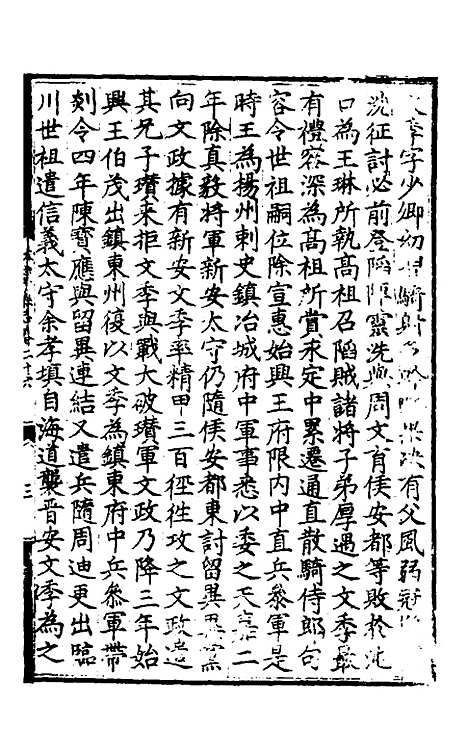 字少卿幼 騎射 果决有父風弱冠
洗征討必前登陷陣靈洗與周文育侯安都等敗於沌
口為王琳所執髙祖召陷賊諸将子弟厚遇之文季最
有禮容深為髙祖所賞永定中累遷通直散騎侍郎句
容令世祖嗣位除宣惠始興王府限内中直兵叅軍是
時王為揚州刺史鎮冶城府中軍事悉以委之天嘉二
年除貞毅將軍新安太守仍隨侯安都東討留異異黨
向文政據有新安文季率精甲三百徑徃攻之文政遣
其兄子瓚来拒文季與戰大破瓚軍文政乃降三年始
興王伯茂出鎮東州復以文季為鎮東府中兵叅軍帶
剡令四年陳寶應與留異連結又遣兵隨周迪更出臨
川世祖遣信義太守余孝塡自海道襲晋安文季為之
二十六
三